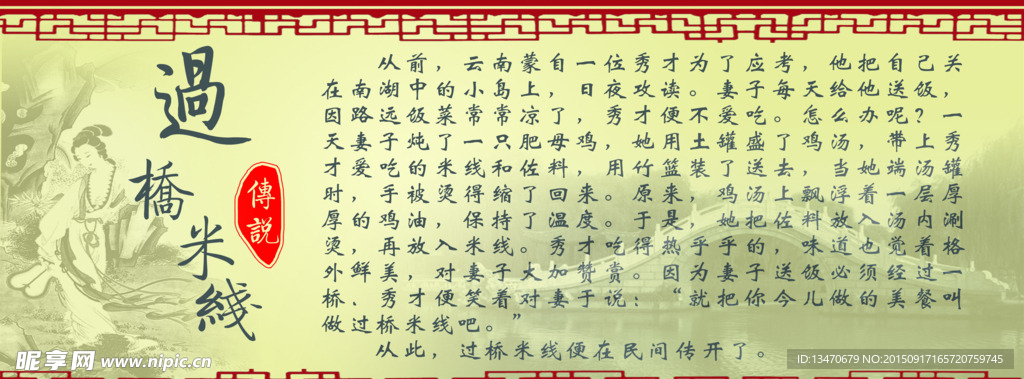 過橋米綫
傳説
从前，云南蒙自一位秀才为了应考，他把自己关
在南湖中的小岛上，日夜攻读。妻子每天给他送饭，
因路远饭菜常常凉了，秀才便不爱吃。怎么办呢？一
天妻子炖了一只肥母鸡，她用土罐盛了鸡汤，带上秀
才爱吃的米线和佐料，用竹篮装了送去，当她端汤罐
时，手被烫得缩了回来。原来，鸡汤上飘浮着一层厚
厚的鸡油，保持了温度。于是，她把佐料放入汤内涮
烫，再放入米线。秀才吃得热乎乎的，味道也觉着格
外鲜美，对妻子大加赞赏。因为妻子送饭必须经过一
桥、秀才便笑着对妻子说：“就把你今儿做的美餐叫
做过桥米线吧。”
从此，过桥米线便在民间传开了。
昵享网 www.nipic.cn
ID:13470679 NO:20150917165720759745